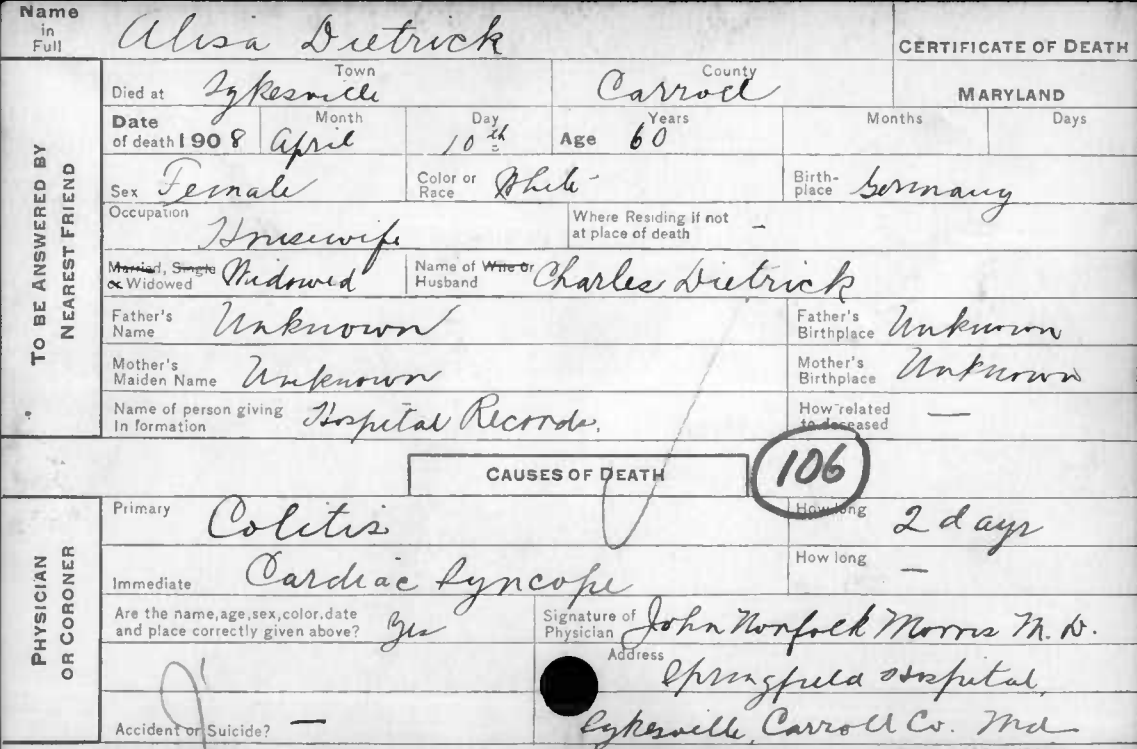 Name in Full Alisa Dietrick
CERTIFICATE OF DEATH
TO BE ANSWERED BY NEAREST FRIEND
Died at Town Sykesville County Carroll MARYLAND
Date of death 1908 Month April Day 10th Age Years 60 Months Days
Sex Female Color or Race White Birth-place Germany
Occupation Housewife Where Residing if not at place of death -
Married, Single or Widowed Widowed Name of Wife or Husband Charles Dietrick
Father's Name Unknown Father's Birthplace Unknown
Mother's Maiden Name Unknown Mother's Birthplace Unknown
Name of person giving In formation Hospital Records. How related to deceased —
CAUSES OF DEATH 106
PHYSICIAN OR CORONER
Primary Colitis How long 2 days
Immediate Cardiac Syncope How long —
Are the name, age, sex, color. date and place correctly given above? Yes Signature of Physician John Norfolk Morris M. D.
Address Springfield Hospital,
Accident or Suicide? — Sykesville, Carroll Co. Md